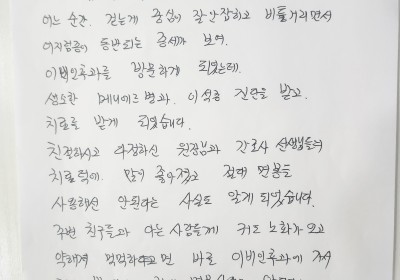 어느 순간. 걷는게 중심이 잘 안잡히고 비틀거리면서
어지럼증이 동반되는 증세가 보여.
이비인후과를 방문하게 되었는데.
생소한 메니에르 병과. 이석증 진단을 받고.
치료를 받게 되었습니다.
친절하시고 다정하신 원장님과 간호사 선생님들의
치료 덕에 많이 좋아졌고 절대 면봉을
사용해선 안된다는 사실도 알게 되었습니다.
주변 친구들과 아는 사람들께 귀도 노화가 오고
약해져 먹먹하다고 면 바로 이비인후과에 가서